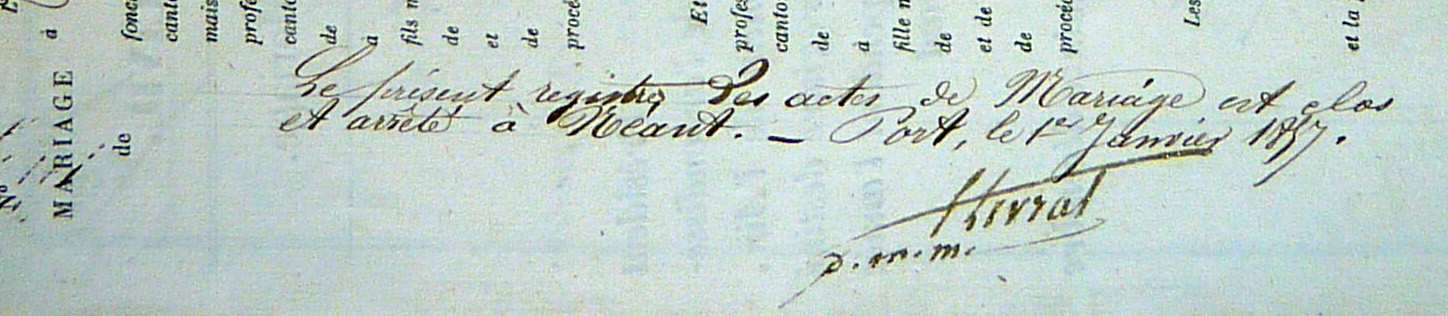 Le présent registre des actes de Mariage est clos
et arrêté à Néant. — Port, le 1er Janvier 1857.
p. m. m.
MARIAGE à
de
N°
fonc
canto
mais
profe
canto
de
à
fils m
de
et
de
procé
Et
profes
canto
de
à
fille m
de
et de
de
procéd
Les
et la